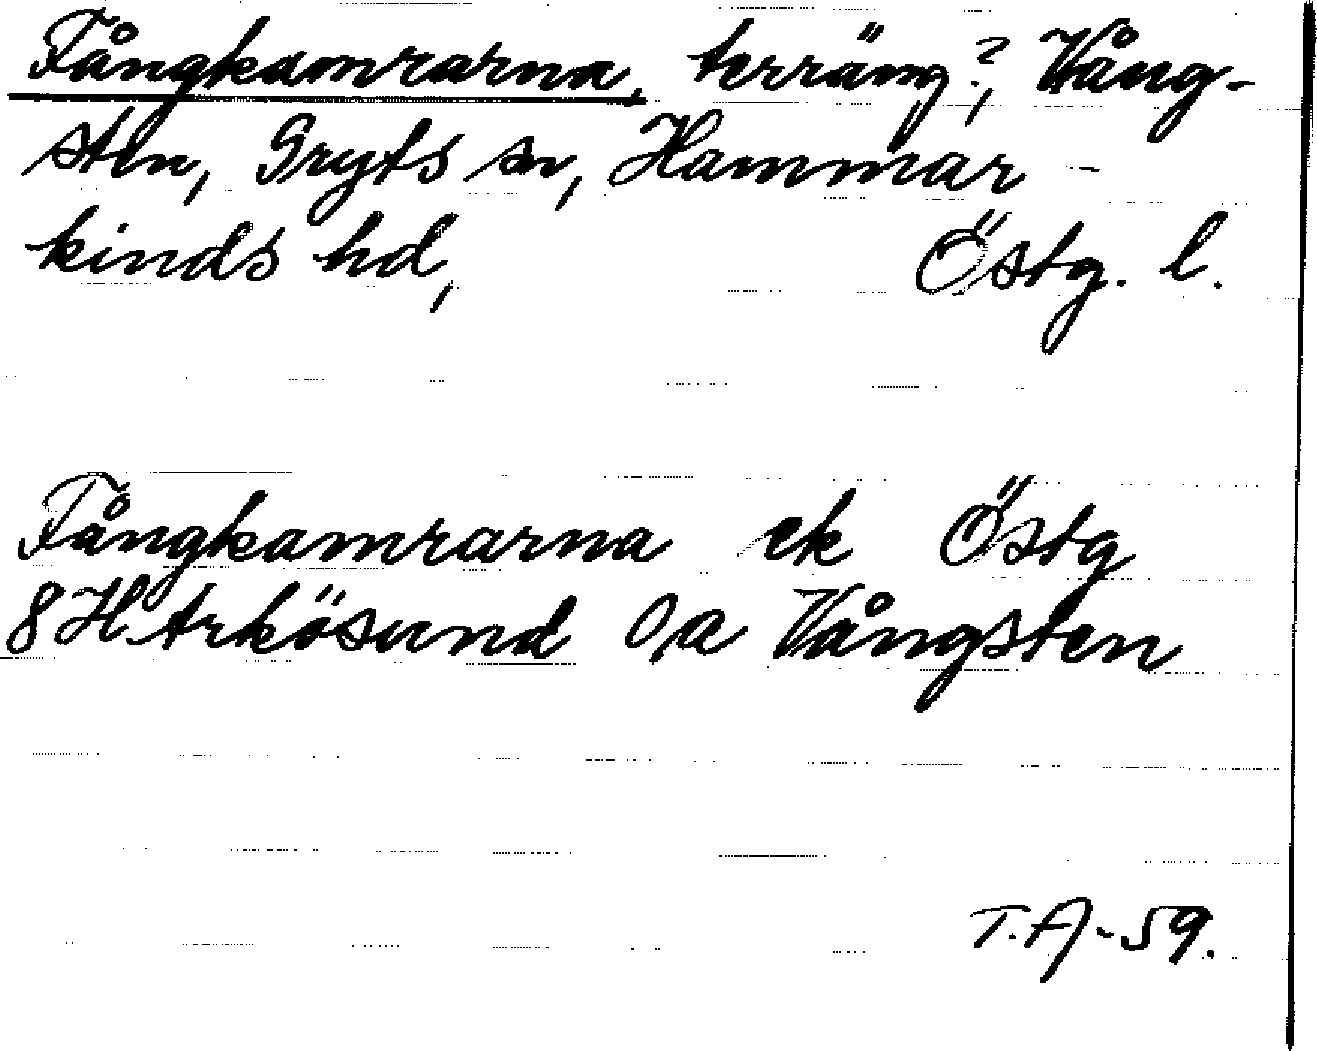 Fångkamrarna, terräng?, Vång-
sten, Gryts sn, Hammar-
kinds hd, Östg. l.
Fångkamrarna ek Östg
8H Arkösund O/a Vångsten
T.A-59.